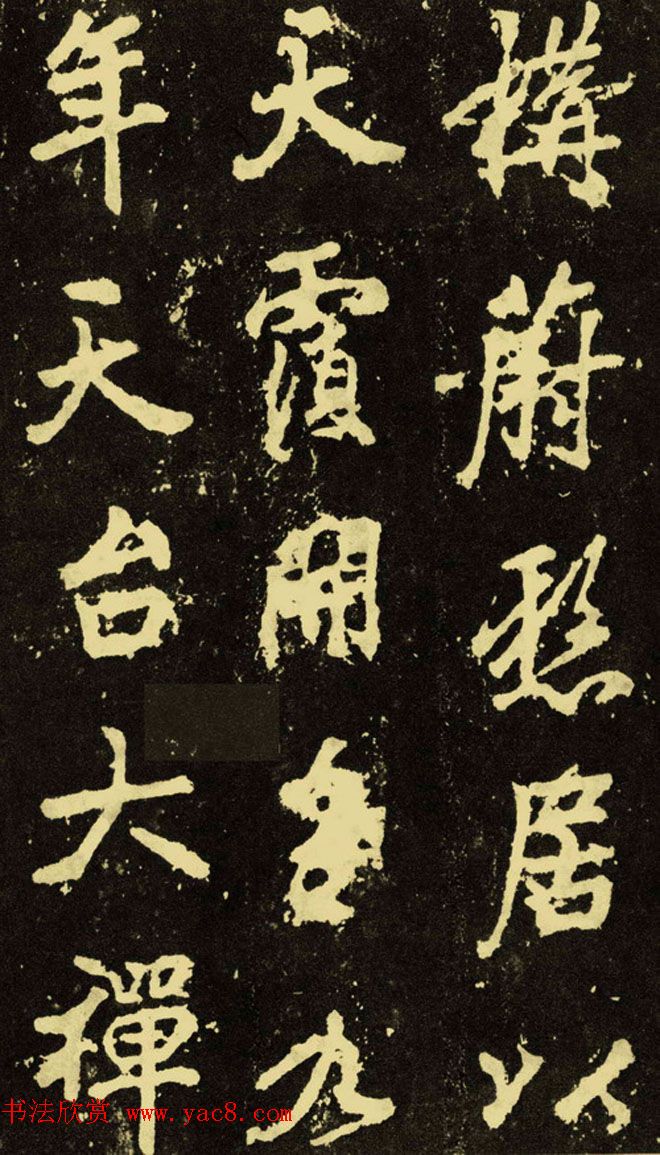 構蔚居以
天霞開皇九
年天台大禪
书法欣赏 www.yac8.com